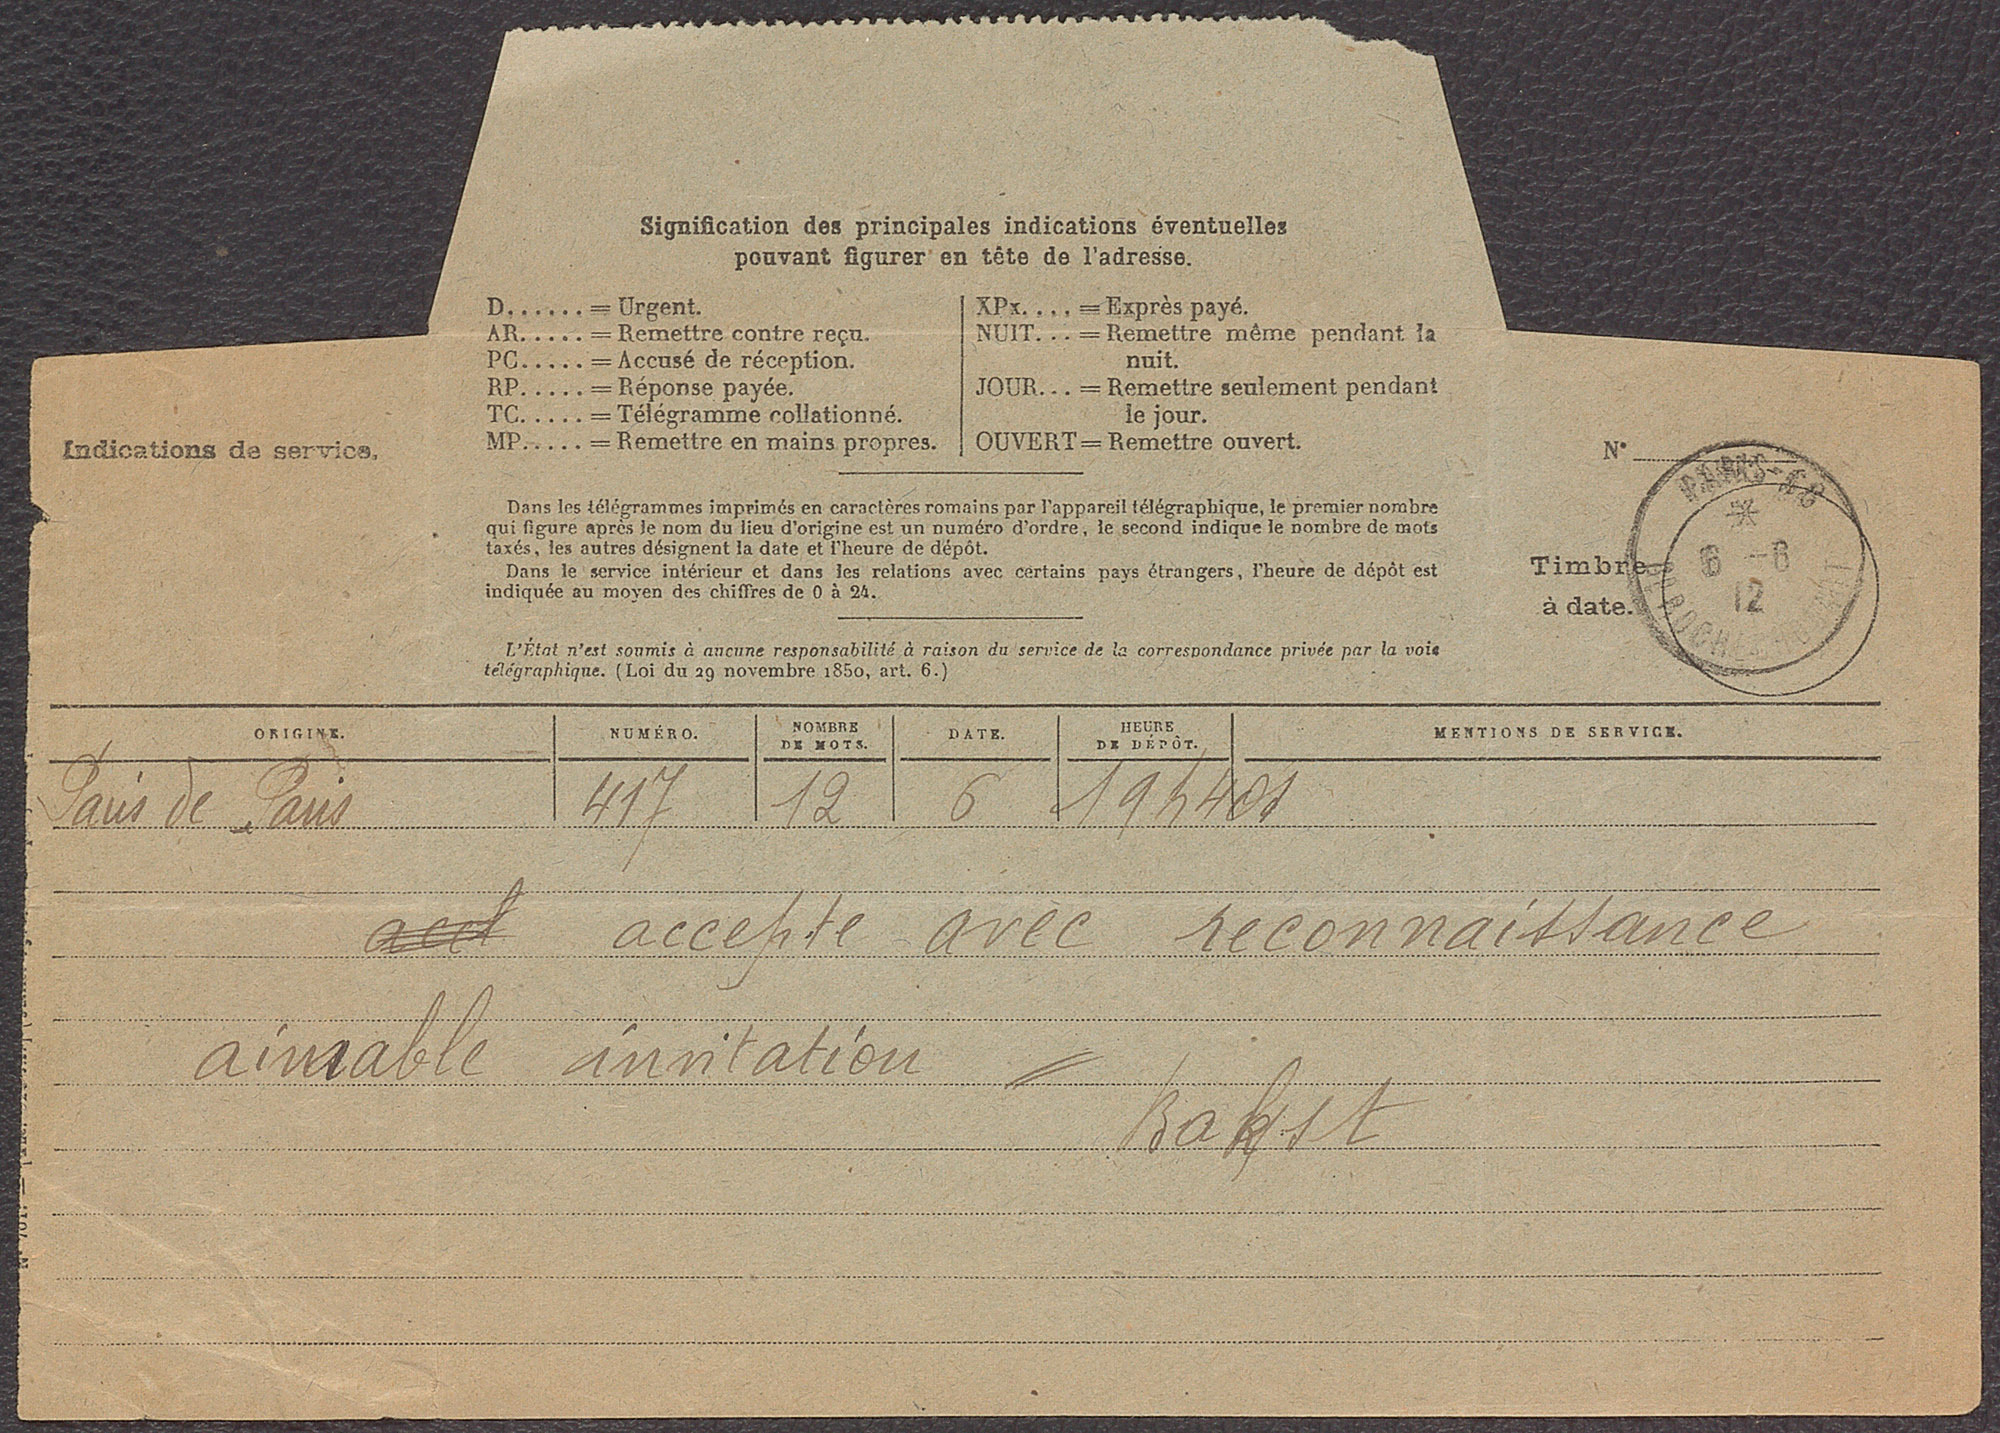 Signification des principales indications éventuelles
pouvant figurer en tête de l'adresse.
D...... = Urgent.
AR..... = Remettre contre reçu.
PC..... = Accusé de réception.
RP..... = Réponse payée.
TC..... = Télégramme collationné.
MP..... = Remettre en mains propres.
XPx.... = Exprès payé.
NUIT... = Remettre même pendant la
nuit.
JOUR... = Remettre seulement pendant
le jour.
OUVERT = Remettre ouvert.
Indications de service.
Dans les télégrammes imprimés en caractères romains par l'appareil télégraphique, le premier nombre
qui figure après le nom du lieu d'origine est un numéro d'ordre, le second indique le nombre de mots
taxés, les autres désignent la date et l'heure de dépôt.
Dans le service intérieur et dans les relations avec certains pays étrangers, l'heure de dépôt est
indiquée au moyen des chiffres de 0 à 24.
L'État n'est soumis à aucune responsabilité à raison du service de la correspondance privée par la voie
télégraphique. (Loi du 29 novembre 1850, art. 6.)
N°
Timbre
à date.
PARIS
6 -6
12
ORIGINE. NUMÉRO. NOMBRE DE MOTS. DATE. HEURE DE DÉPÔT. MENTIONS DE SERVICE.
Paris de Paris 417 12 6
accepte avec reconnaissance
aimable invitation =
Bakst